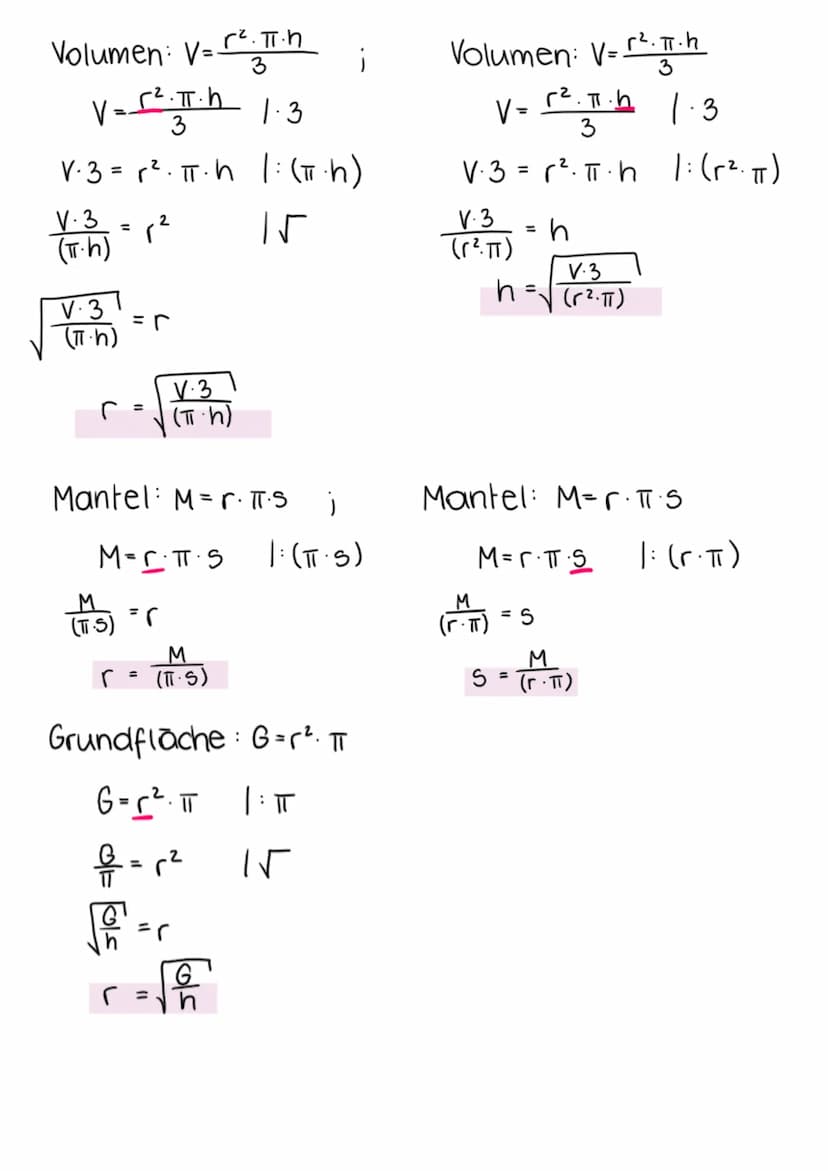 Volumen: V = r² · π · h / 3 ;
V = r² · π · h / 3 | · 3
V · 3 = r² · π · h | : (π · h)
V · 3 / (π · h) = r² | √
√(V · 3 / (π · h)) = r
r = √(V · 3 / (π · h))
Volumen: V = r² · π · h / 3
V = r² · π · h / 3 | · 3
V · 3 = r² · π · h | : (r² · π)
V · 3 / (r² · π) = h
h = √(V · 3 / (r² · π))
Mantel: M = r · π · s ;
M = r · π · s | : (π · s)
M / (π · s) = r
r = M / (π · s)
Mantel: M = r · π · s
M = r · π · s | : (r · π)
M / (r · π) = s
s = M / (r · π)
Grundfläche : G = r² · π
G = r² · π | : π
G / π = r² | √
√(G / h) = r
r = √(G / h)